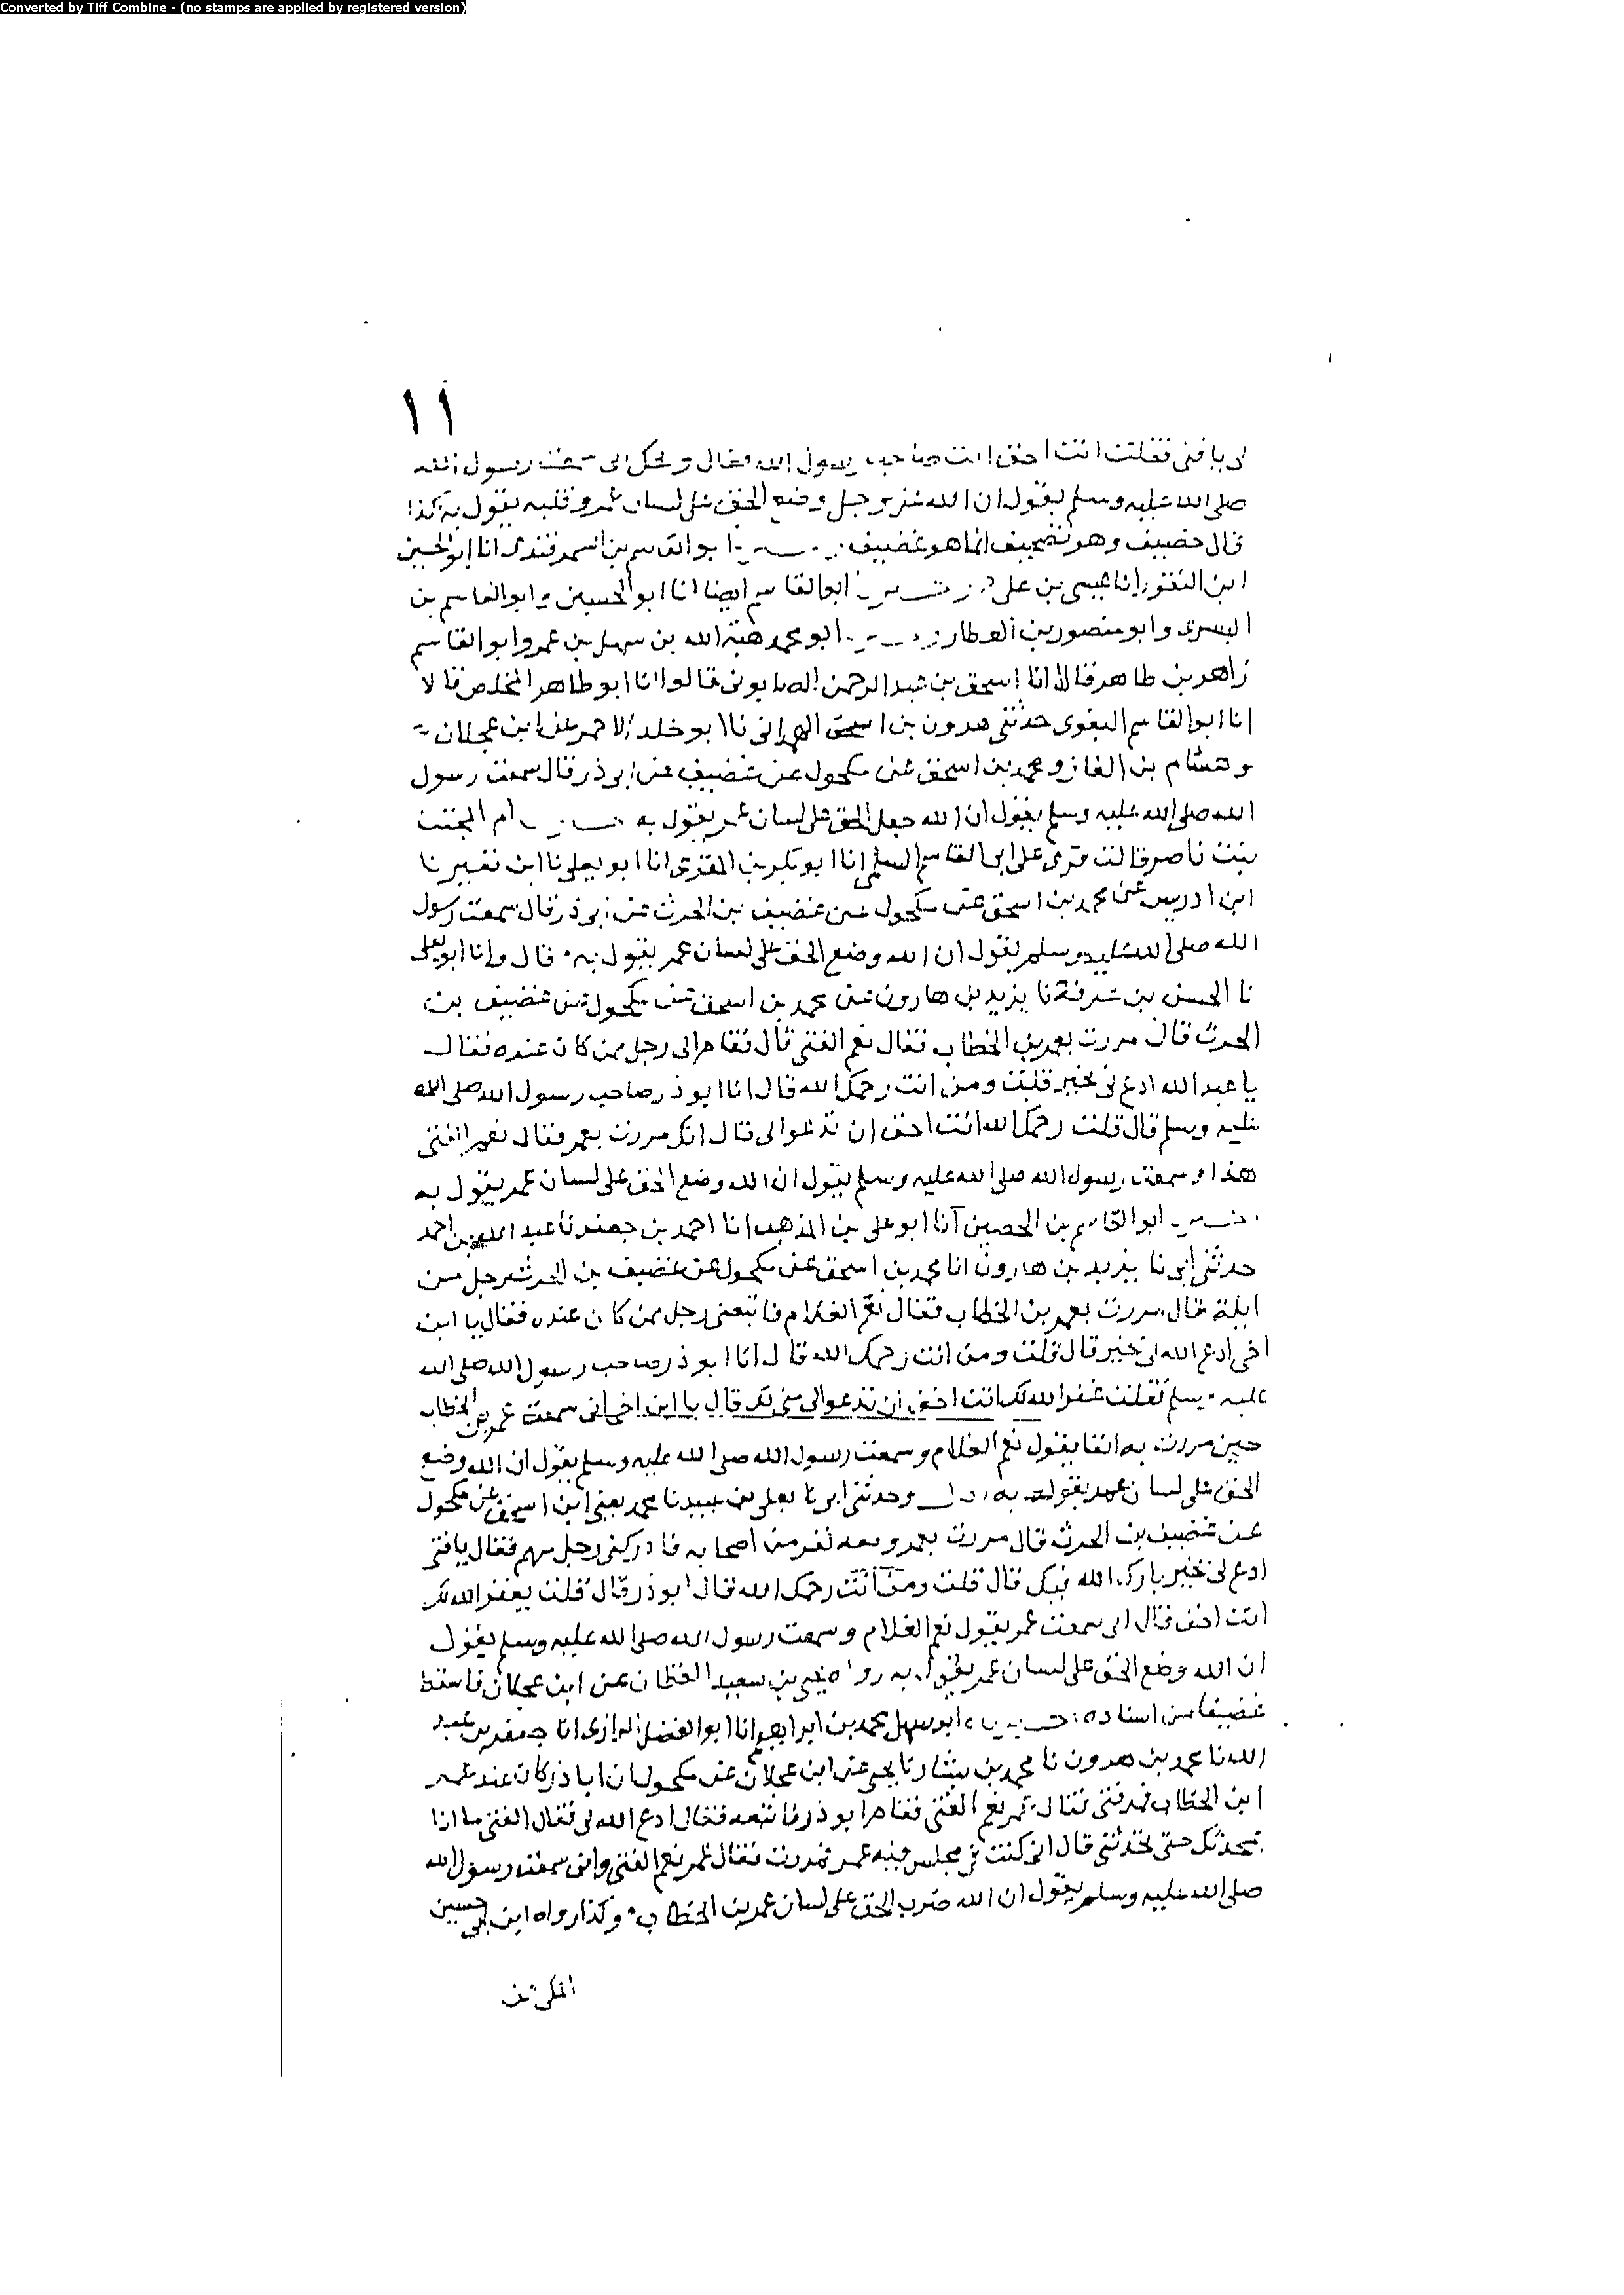 Converted by Tiff Combine - (no stamps are applied by registered version)
١١
لى يا فتى فقلت انت احق انت صاحب رسول الله فقال ويحك انى سمعت رسول الله
صلى الله عليه وسلم يقول ان الله عز وجل وضع الحق على لسان عمر وقلبه يقول به كذا
قال حضيف وهو تصحيف انما هو غضيف ابو القاسم بن السمرقندى انا ابو الحسين
ابن النقور انا عيسى بن على ابو القاسم ايضا انا ابو الحسين وابو القاسم بن
البسرى وابو منصور بن العطار ابو محمد هبة الله بن سهل بن عمر وابو القاسم
زاهر بن طاهر قالا انا اسحق بن عبد الرحمن الصابونى قالوا انا ابو طاهر المخلص قالا
انا ابو القاسم البغوى حدثنى هرون بن اسحق الهمدانى نا ابو خلد الاحمر عن ابن عجلان
وهشام بن الغاز ومحمد بن اسحق عن مكحول عن غضيف عن ابى ذر قال سمعت رسول
الله صلى الله عليه وسلم يقول ان الله جعل الحق على لسان عمر يقول به ام المجتبى
بنت ناصر قالت قرئ على ابى القاسم السلمى انا ابو بكر بن المقرى انا ابو يعلى نا ابن نمير نا
ابن ادريس عن محمد بن اسحق عن مكحول عن غضيف بن الحرث عن ابى ذر قال سمعت رسول
الله صلى الله عليه وسلم يقول ان الله وضع الحق على لسان عمر يقول به قال وانا ابو يعلى
نا الحسن بن عرفة نا يزيد بن هارون عن محمد بن اسحق عن مكحول عن غضيف بن
الحرث قال مررت بعمر بن الخطاب فقال نعم الفتى قال فقام الى رجل ممن كان عنده فقال
يا عبد الله ادع لى بخير قلت ومن انت رحمك الله قال انا ابو ذر صاحب رسول الله صلى الله
عليه وسلم قال قلت رحمك الله انت احق ان تدعوا لى قال انك مررت بعمر فقال نعم الفتى
هذا وسمعت رسول الله صلى الله عليه وسلم يقول ان الله وضع الحق على لسان عمر يقول به
ابو القاسم بن الحصين انا ابو على بن المذهب انا احمد بن جعفر نا عبد الله بن احمد
حدثنى ابى نا يزيد بن هارون انا محمد بن اسحق عن مكحول عن غضيف بن الحرث رجل من
ايلة قال مررت بعمر بن الخطاب فقال نعم الغلام فاتبعنى رجل ممن كان عنده فقال يا ابن
اخى ادع الله لى بخير قال قلت ومن انت رحمك الله قال انا ابو ذر صاحب رسول الله صلى الله
عليه وسلم فقلت غفر الله لك انت احق ان تدعوا لى منى لك قال يا ابن اخى انى سمعت عمر بن الخطاب
حين مررت به انفا يقول نعم الغلام وسمعت رسول الله صلى الله عليه وسلم يقول ان الله وضع
الحق على لسان عمر يقول به قال وحدثنى ابى نا يعلى بن عبيد نا محمد يعنى ابن اسحق عن مكحول
عن غضيف بن الحرث قال مررت بعمر ومعه نفر من اصحابه فادركنى رجل منهم فقال يا فتى
ادع لى بخير بارك الله فيك قال قلت ومن انت رحمك الله قال ابو ذر قال قلت يغفر الله لك
انت احق قال انى سمعت عمر يقول نعم الغلام وسمعت رسول الله صلى الله عليه وسلم يقول
ان الله وضع الحق على لسان عمر يقول به رواه يحيى بن سعيد القطان عن ابن عجلان فاسقط
غضيفا من اسناده ابو سهل محمد بن ابراهيم انا ابو الفضل الرازى انا جعفر بن عبد
الله نا محمد بن هرون نا محمد بن بشار نا يحيى عن ابن عجلان عن مكحول ان ابا ذر كان عند عمر
ابن الخطاب فمر فتى فقال عمر نعم الفتى فقام ابو ذر فاتبعه فقال ادع الله لى فقال الفتى ما انا
بمحدثك حتى تحدثنى قال انى كنت فى مجلس فيه عمر فمررت فقال عمر نعم الفتى وانى سمعت رسول الله
صلى الله عليه وسلم يقول ان الله ضرب الحق على لسان عمر بن الخطاب وكذا رواه ابن ابى حسين
المكى عن